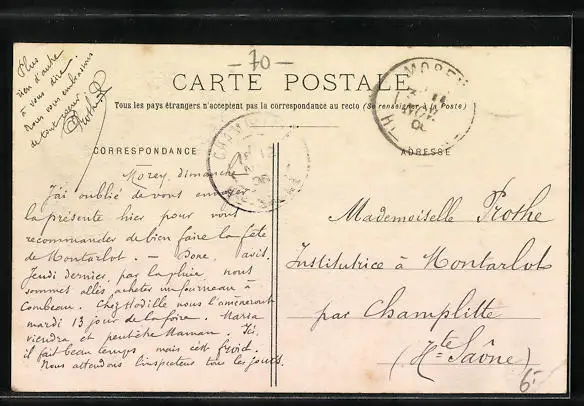 - 70 -
CARTE POSTALE
Tous les pays étrangers n'acceptent pas la correspondance au recto (Se renseigner à la Poste)
Plus
rien d'autre
à vous dire.
Nous vous embrassons
de tout cœur
CORRESPONDANCE
Morey, dimanche
J'ai oublié de vous envoyer
la présente hier pour vous
recommander de bien faire la fête
de Montarlot. — Donc, avis.
Jeudi dernier, par la pluie, nous
sommes allés acheter un fourneau à
Combeau. Chez Hodille nous l'amèneront
mardi 13 jour de la foire. Maria
viendra et peut-être Maman. Ici,
il fait beau temps mais c'est froid.
Nous attendons l'inspecteur tous les jours.
MOREY
ADRESSE
Mademoiselle Prothe
Institutrice à Montarlot
par Champlitte
(Hte Saône)
6.-